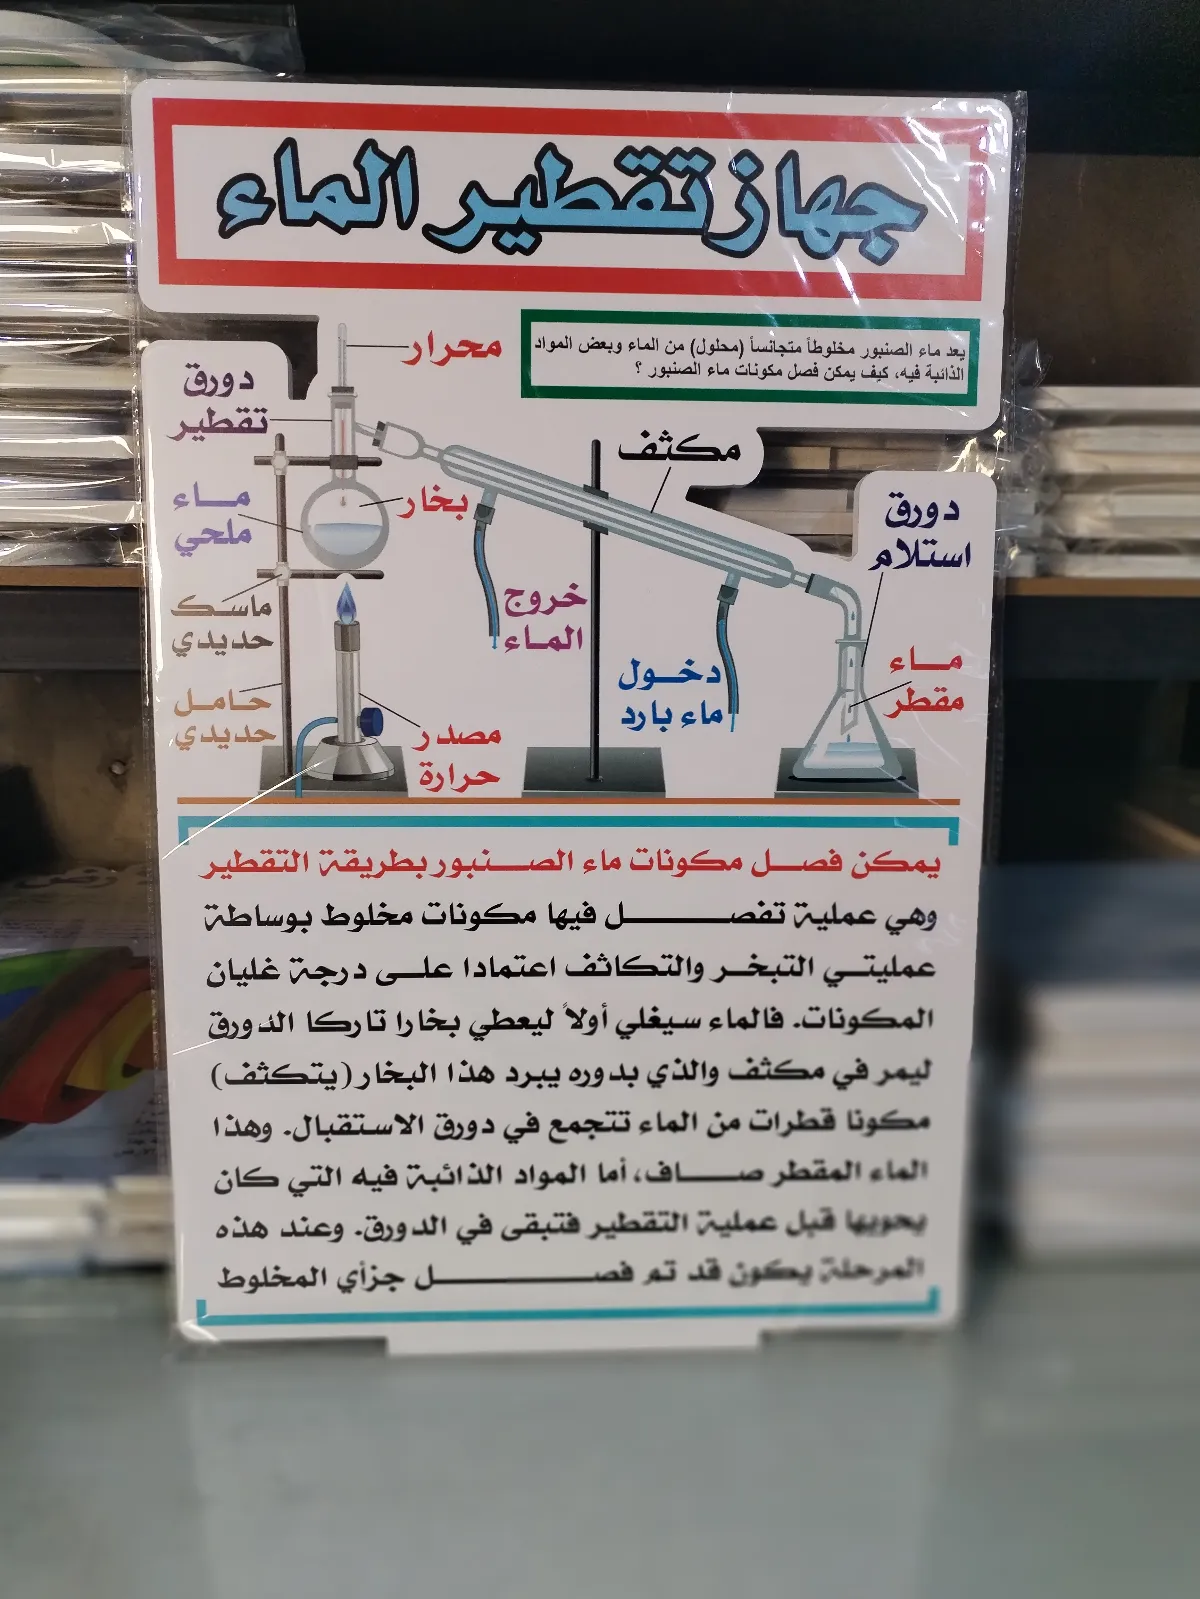 جهاز تقطير الماء
يعد ماء الصنبور مخلوطاً متجانساً (محلول) من الماء وبعض المواد
الذائبة فيه، كيف يمكن فصل مكونات ماء الصنبور ؟
محرار
دورق
تقطير
مكثف
بخار
مـاء
ملحي
دورق
استلام
خروج
المـاء
ماسك
حديدي
دخـول
ماء بارد
مـاء
مقطر
حامـل
حديدي
مصدر
حرارة
يمكن فصـل مكونات ماء الصـنبور بطريقة التقطير
وهي عملية تفصـل فيها مكونات مخلوط بوساطة
عمليتـي التبخـر والتكاثف اعتمادا علـى درجة غليان
المكونات. فالماء سيغلي أولاً ليعطي بخارا تاركا الدورق
ليمر في مكثف والذي بدوره يبرد هذا البخار (يتكثف)
مكونا قطرات من الماء تتجمع في دورق الاستقبال. وهذا
الماء المقطر صـاف، أما المواد الذائبة فيه التي كان
يحويها قبل عملية التقطير فتبقى في الدورق. وعند هذه
المرحلة يكون قد تم فصـل جزأي المخلوط